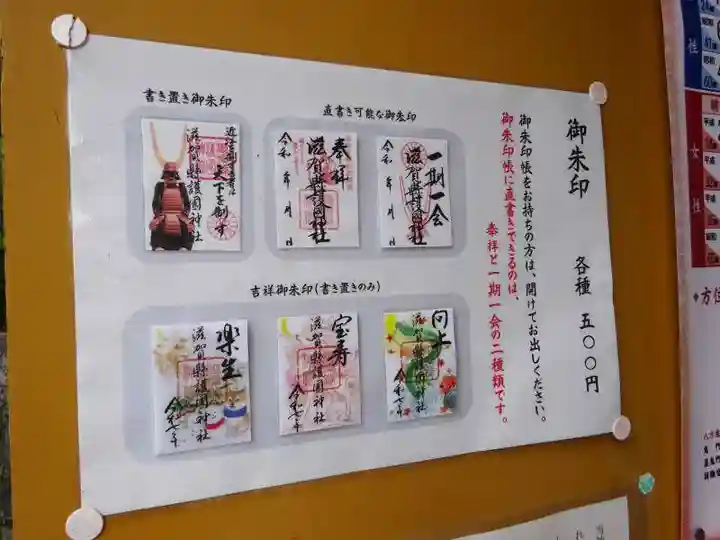 御朱印
各種 五〇〇円
御朱印帳をお持ちの方は、開けてお出しください。
御朱印帳に直書きできるのは、
奉拝と一期一会の二種類です。
直書き可能な御朱印
一期一会
滋賀縣護國神社
奉拝
滋賀縣護國神社
令和 年 月 日
書き置き御朱印
天下を制す
滋賀縣護國神社
吉祥御朱印(書き置きのみ)
向上
滋賀縣護國神社
宝寿
滋賀縣護國神社
楽生
滋賀縣護國神社
女性
方位